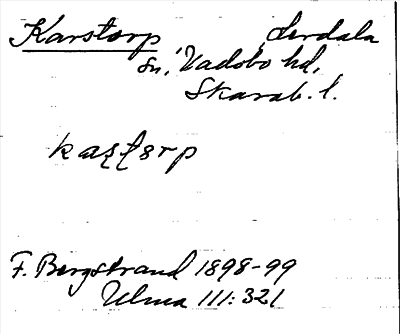 Karstorp Lerdala
sn, Vadsbo hd,
Skarab. l.
kaʂʈɔrp
F. Bergstrand 1898-99
Ulma 111:321